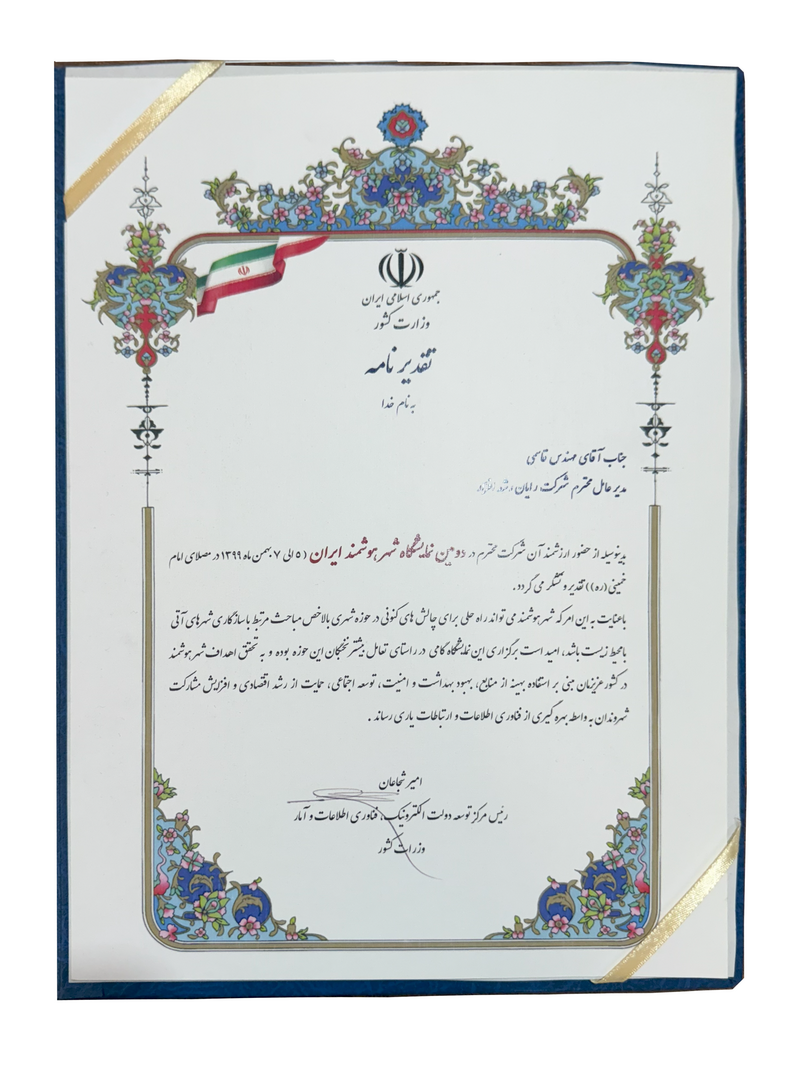 جمهوری اسلامی ایران
وزارت کشور
تقدیر نامه
به نام خدا
جناب آقای مهندس قاسمی
مدیر عامل محترم شرکت رایان
بدینوسیله از حضور ارزشمند آن شرکت محترم در دومین نمایشگاه شهر هوشمند ایران (۵ الی ۷ بهمن ماه ۱۳۹۹ در مصلای امام
خمینی (ره)) تقدیر و تشکر می گردد.
باعنایت به این امر که شهر هوشمند می تواند راه حلی برای چالش های کنونی در حوزه شهری بالاخص مباحث مرتبط با سازگاری شهرهای آتی
با محیط زیست باشد، امید است برگزاری این نمایشگاه گامی در راستای تعامل بیشتر نخبگان این حوزه بوده و به تحقق اهداف شهر هوشمند
در کشور عزیزمان مبنی بر استفاده بهینه از منابع، بهبود بهداشت و امنیت، توسعه اجتماعی، حمایت از رشد اقتصادی و افزایش مشارکت
شهروندان به واسطه بهره گیری از فناوری اطلاعات و ارتباطات یاری رساند .
امیر شجاعان
رئیس مرکز توسعه دولت الکترونیک، فناوری اطلاعات و آمار
وزرات کشور